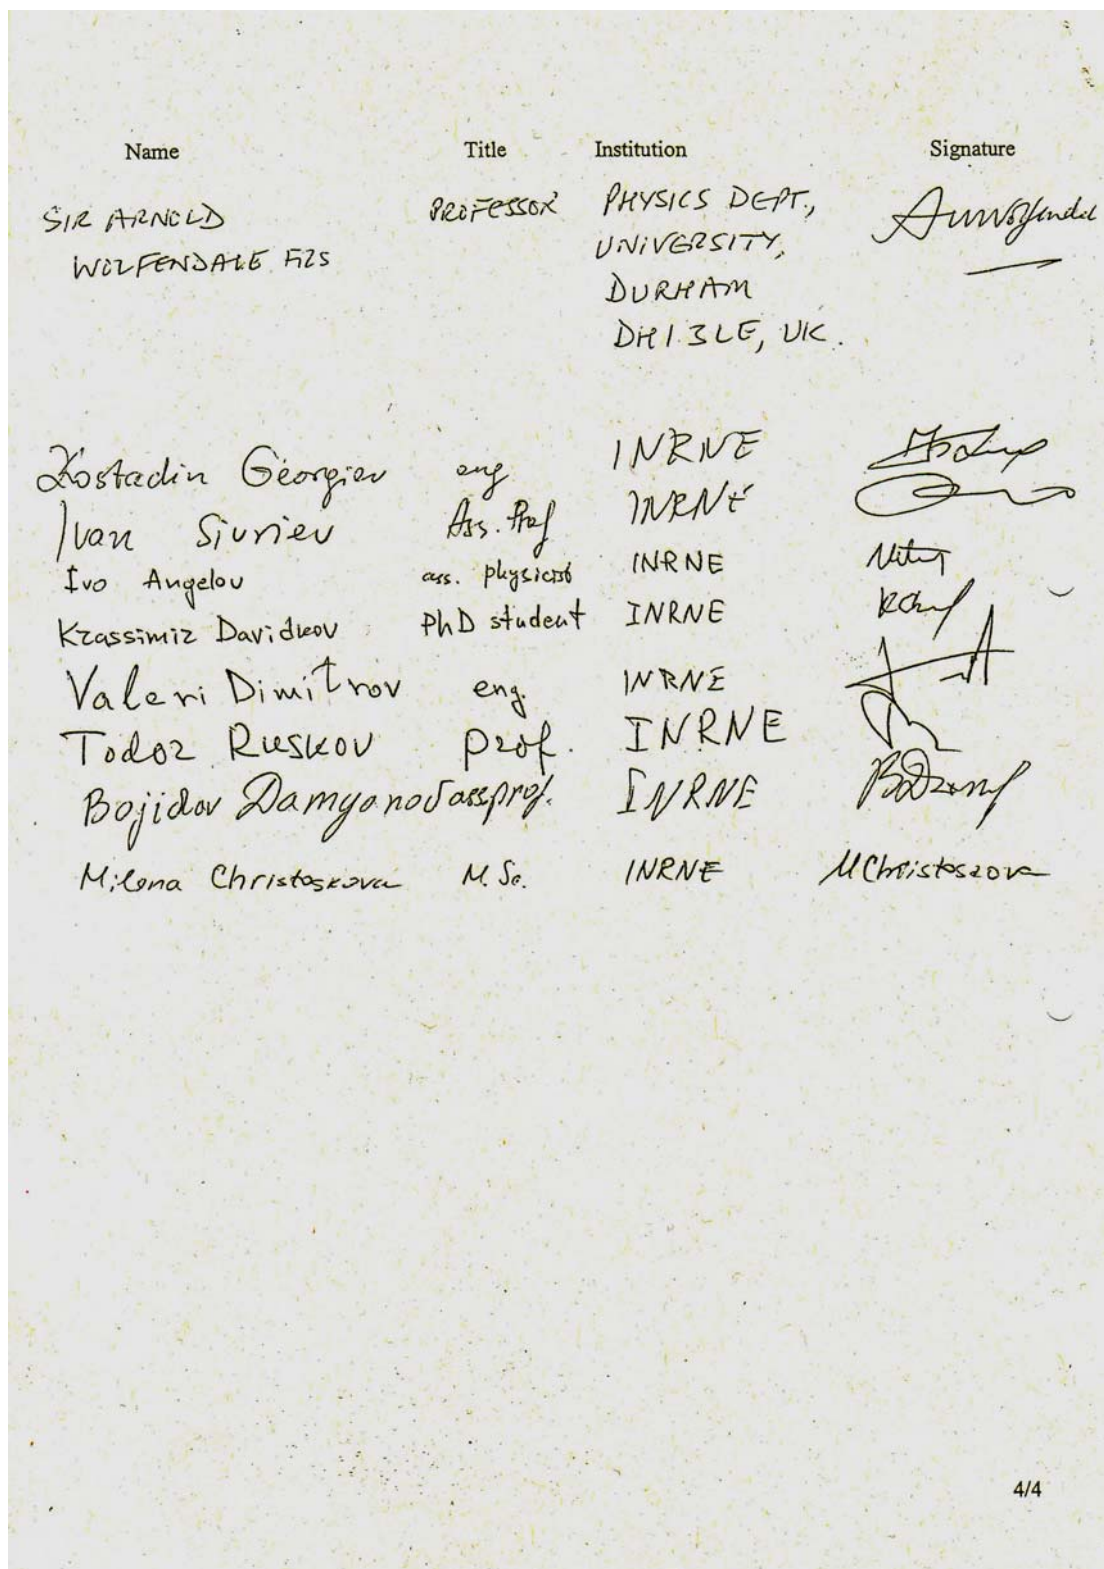 Name Title Institution Signature
SIR ARNOLD PROFESSOR PHYSICS DEPT.,
WOLFENDALE FRS UNIVERSITY,
DURHAM
DH1 3LE, UK.
Kostadin Georgiev eng INRNE
Ivan Siuriev Ass. Prof INRNE
Ivo Angelov ass. physicist INRNE
Krassimir Davidkov PhD student INRNE
Valeri Dimitrov eng. INRNE
Todor Ruskov prof. INRNE
Bojidar Damyanov ass prof. INRNE
Milena Christoskova M. Sc. INRNE MChristoskova
4/4